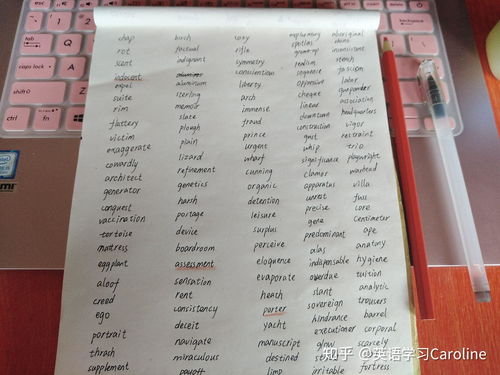 chap birch cosy exploratory aboriginal
rot factual rifle shuns
scent indignant symmetry grown-up inconsistent
indecent aluminum convention realism stench
expel aluminium liberty sequence fascism
suite sterling arch oppressive later
rim memoir immense cheque gunpowder
flattery slate fraud linear association
victim plough prince downtown headquarters
exaggerate plain urgent construction vigor
cowardly lizard wharf gust restraint
architect refinement cunning whip trio
generator genetics organic significance playwright
conquest harsh detention clamor warhead
vaccination portage leisure apparatus villa
tortoise device surplus unrest fuss
mattress boardroom perceive precise core
eggplant assessment eloquence gene centimeter
aloof sensation evaporate predominant ape
creed rent heath alas anatomy
ego consistancy porter indispensable hygiene
portrait deceit yacht overdue tuition
thrash navigate manuscript slant analytic
supplement miraculous destined sovereign trousers
payoff limp hindrance barrel
executioner corporal
glow scarcely
irritable fortress
知乎 @英语学习Caroline